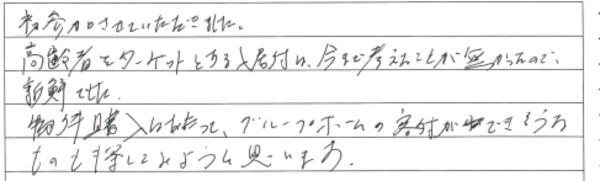 初参加させていただきました。
高齢者をターゲットとする入居付は、今まで考えたことが無かったので、
新鮮でした。
物件購入にあたって、グループホームの客付ができそうな
ものも探してみようと思います。